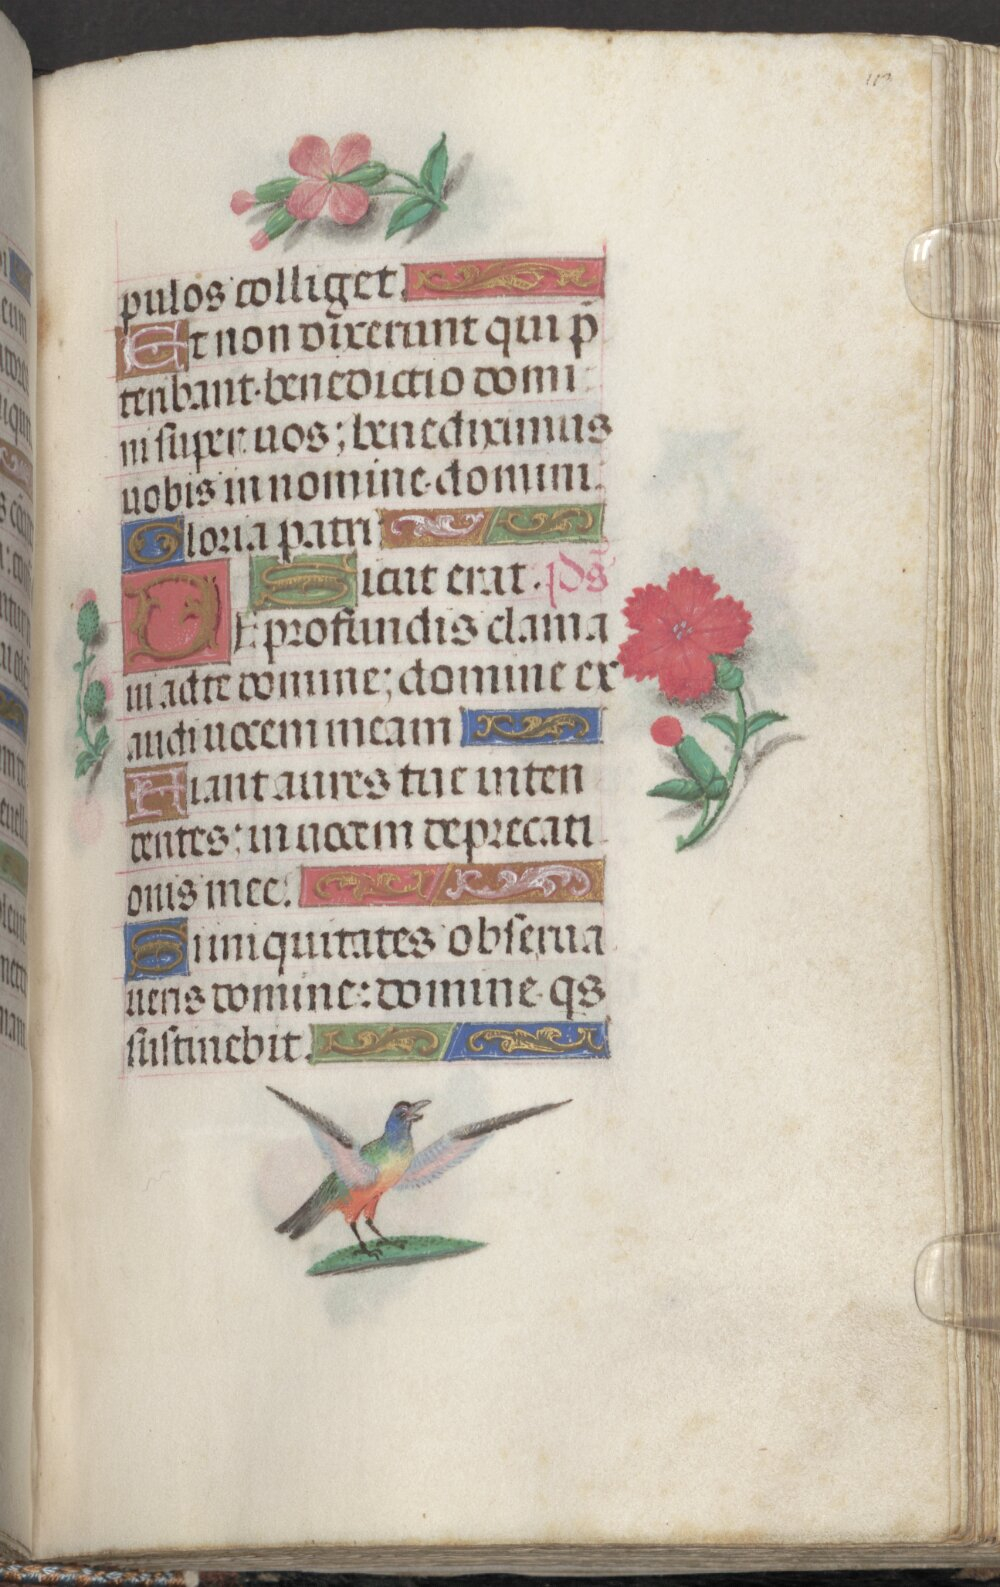 113
pulos colliget.
Et non dixerunt qui p̄
teribant benedictio domi
ni super uos; benediximus
uobis in nomine domini.
Gloria patri
Sicut erat. Ps̄
De profundis clama
ui ad te domine; domine ex
audi uocem meam
Fiant aures tue inten
dentes; in uocem deprecati
onis mee.
Si iniquitates obserua
ueris domine: domine qs
sustinebit.